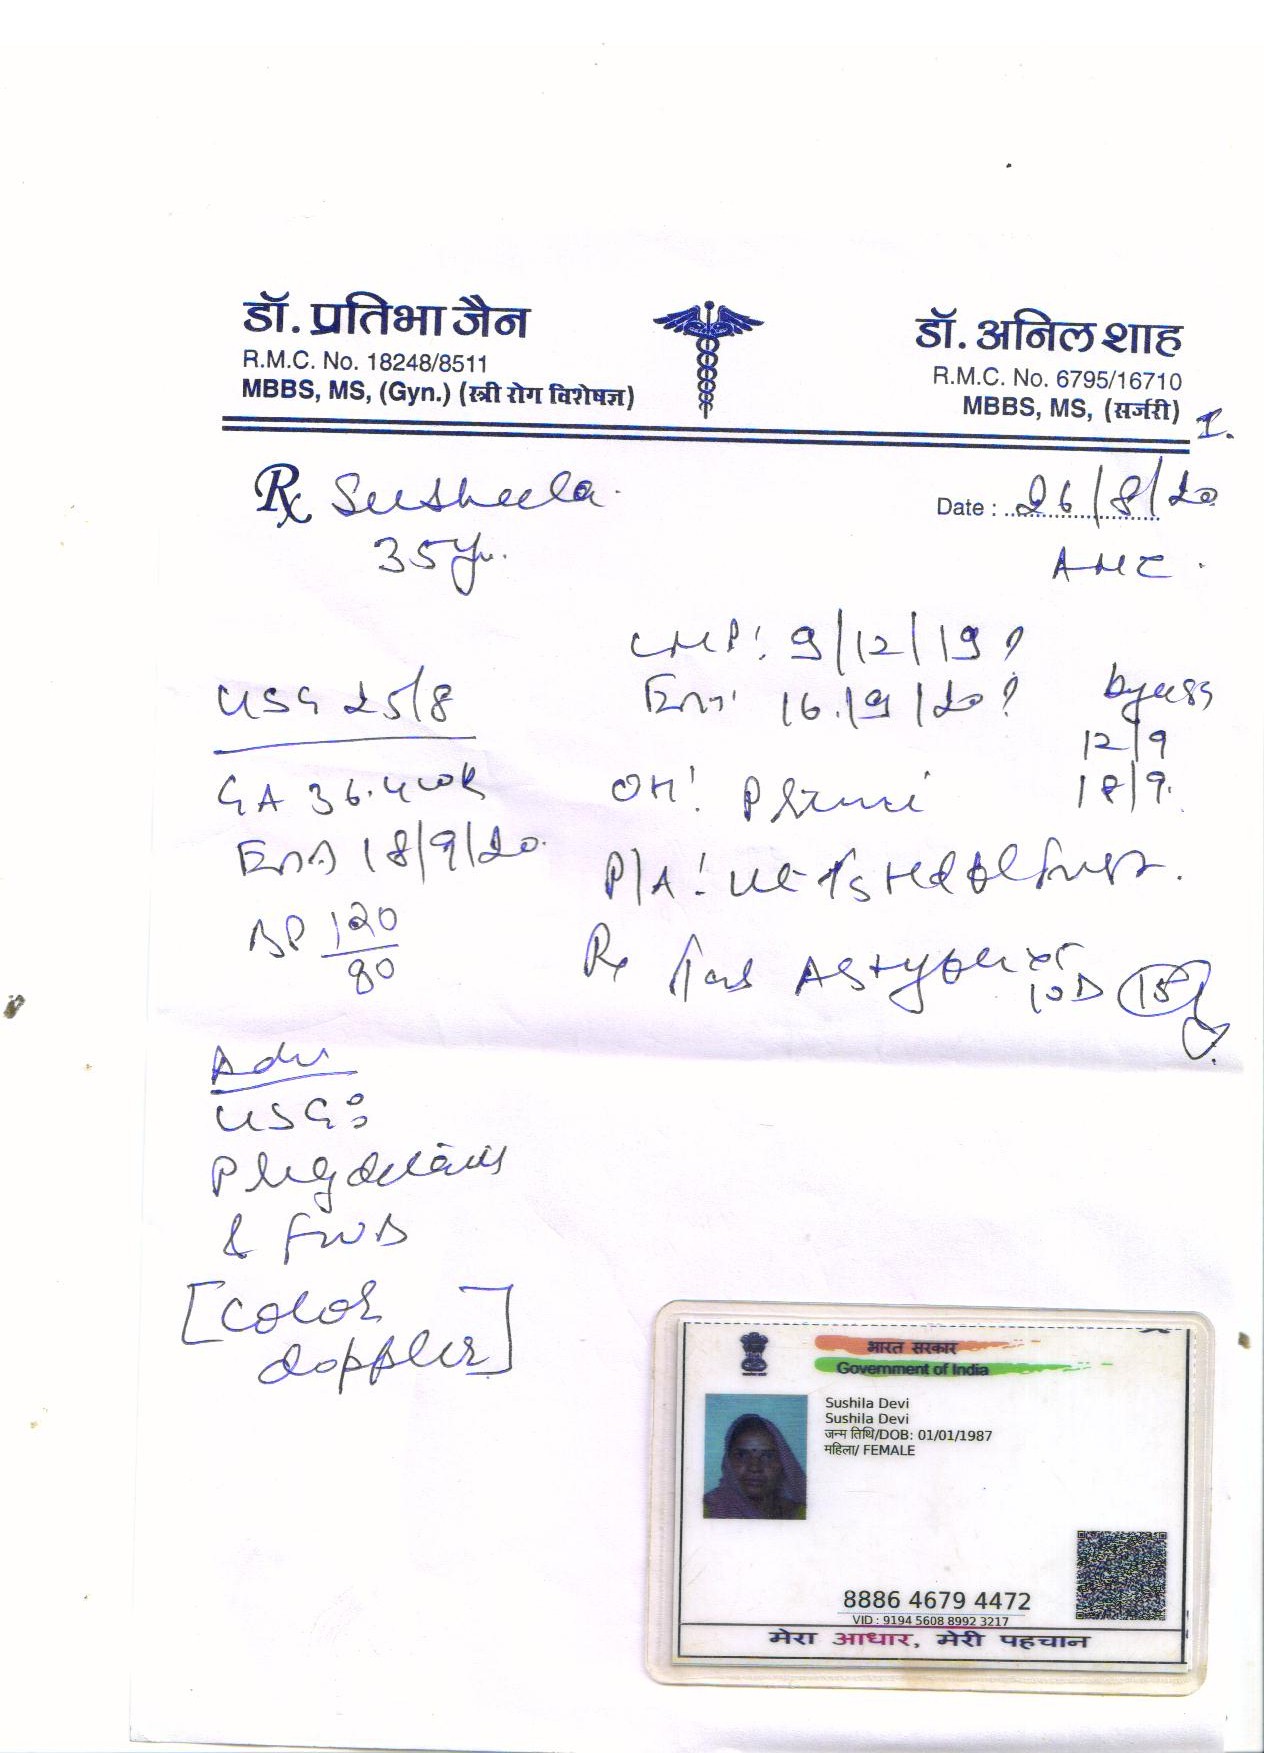 डॉ. प्रतिभा जैन
R.M.C. No. 18248/8511
MBBS, MS, (Gyn.) (स्त्री रोग विशेषज्ञ)
डॉ. अनिल शाह
R.M.C. No. 6795/16710
MBBS, MS, (सर्जरी)
1.
Rx Susheela.
Date : 26/8/20
35yr.
ANC.
LMP: 9/12/19?
EDD: 16/9/20?
by USG
12/9
18/9.
USG 25/8
GA 36.4 wk
EDD 18/9/20.
BP 120/80
OH: Primi
P/A:
Rx Tab
10D (15)
Adv
USG:
& FWB
[color
doppler]
भारत सरकार
Government of India
Sushila Devi
Sushila Devi
जन्म तिथि/DOB: 01/01/1987
महिला/ FEMALE
8886 4679 4472
VID : 9194 5608 8992 3217
मेरा आधार, मेरी पहचान